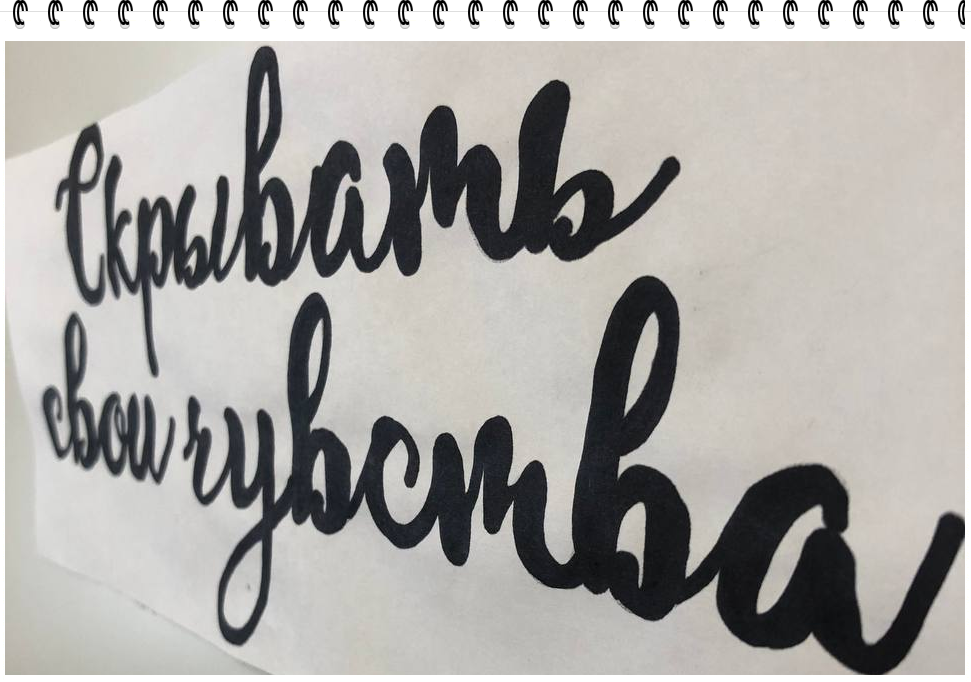 Скрывать
свои чувства